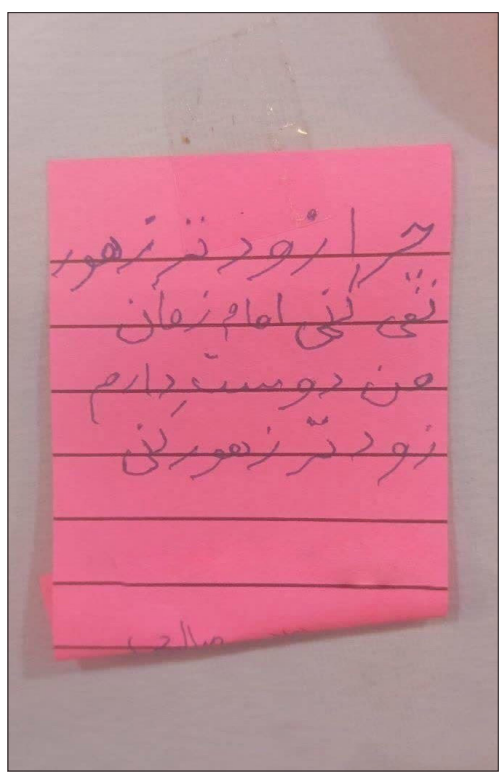 چرا زودتر زهور
نمی کنی امام زمان
من دوست دارم
زودتر زهور کنی
صالحی